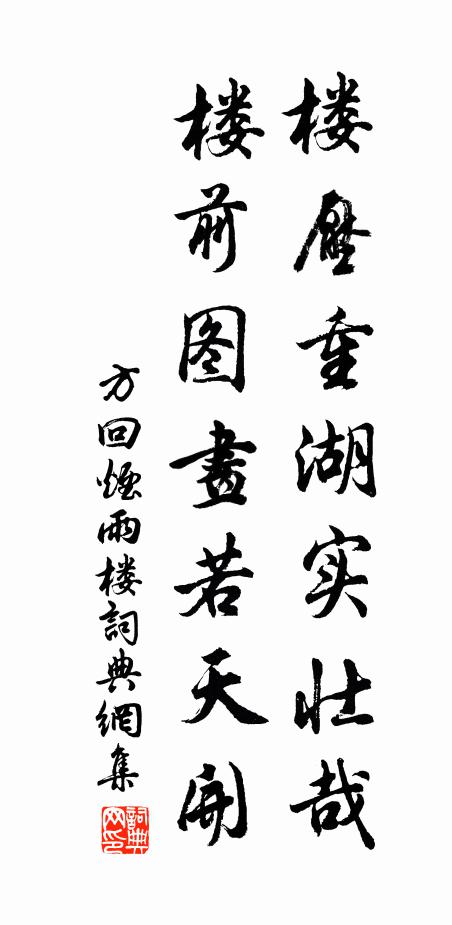 楼压重湖实壮哉
楼前图畫若天開
方回煙雨楼詞典網集
詞典网印